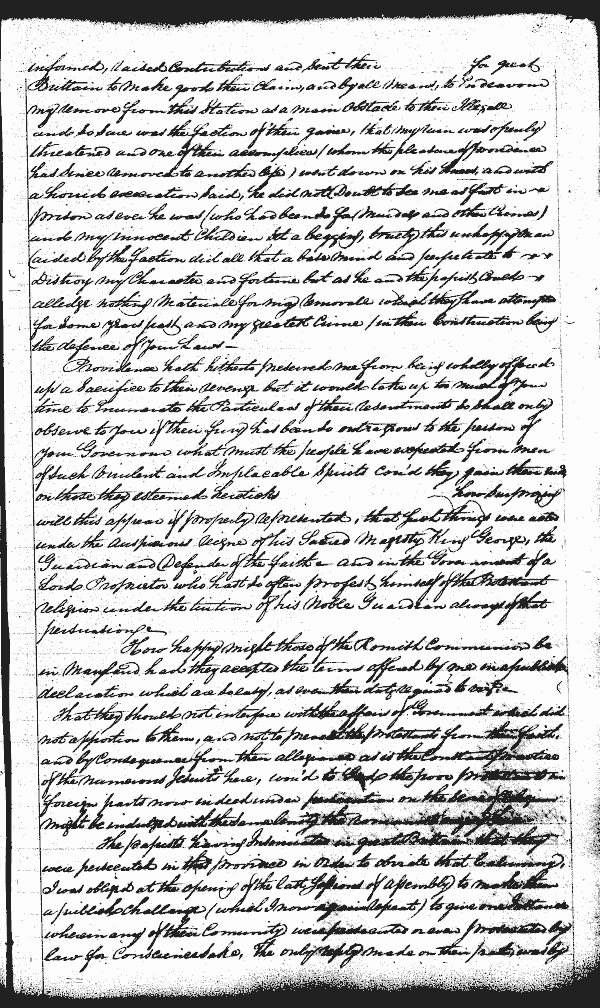 informed, raised Contributions and Sent their for great
Brittain to make good their Claim, and by all Means, to Endeavour
my remove from this Station as a main Obstacle to their Illegall
and So Sure was the faction of their game, that my ruin was openly
threatened and one of their accomplices (whom the pleasure of providence
has Since removed to another life) went down on his knees, and with
a horrid execration Said, he did not Doubt to See me as fast in a
Prison as ever he was (who had been So for Murder and other Crimes)
and my innocent Children Set a begging, this unhappy Man
(aided by the faction did all that a base Mind and perpetrate to
Distroy my Character and fortune but as he and the papist Could
alledge nothing Materiale for my removale which they have attempted
for Some Years past, and my greatest Crime (in their Construction being
the defence of Your Laws —
Providence hath hitherto preserved me from being wholly offered
up a Sacrifice to their revenge but it would take up too much of Your
time to Enumerate the Particulars of their resentment So Shall only
observe to You if their fury has been So outragious to the person of
Your Governour what must the people have expected from men
of Such Virulent and Implacable Spirits Cou'd they gain their
on those they esteemed hereticks how Surprising
will this appear if Property represented, that Such things were acted
under the Auspicious reigne of his Sacred Majesty King George, the
Guardian and Defender of the faith and in the Government of a
Lords Proprietor who hath So often profest himself of the Protestant
religion under the tuition of his Noble Guardian always of that
persuasion
How happy might those of the Romish Communion be
in Maryland had they accepted the terms offered by me in a publick
declaration which are So easy, as even their duty required to
That they Should not interfere with the affairs of Government which did
not apportion to them, and not to the Protestants from their faith,
and by Consequence from their allegiance as is the Constant practice
of the numerous Jesuits here, wou'd to God the poor Protestants in
foreign parts now indeed under persecution on the Score of Religion
might be indulged with the Same
The papists having Insinuated in great Brittain that they
were persecuted in this province in Order to obviate that Calumny,
I was obliged at the opening of the last Sessions of Assembly to make them
a publick Challenge (which I now again repeat) to give one Instance
wherein any of their Comunity were persecuted or even prosecuted by
law for Conscience Sake, the only reply made on their part, was by